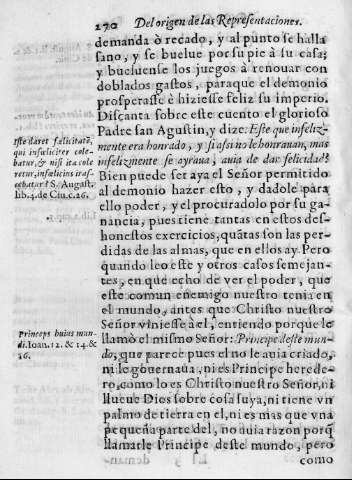 270 Del origen de las Representaciones.
demanda ò recado, y al punto se halla
sano, y se buelue por su pie à su casa;
y bueluense los juegos à renouar con
doblados gastos, paraque el demonio
prosperasse è hiziesse feliz su imperio.
Discanta sobre este cuento el glorioso
Padre san Agustin, y dize: Este que infeliz-
mente era honrado, y si assi no le honrauan, mas
infelizmente se ayraua, auia de dar felicidad?
Bien puede ser aya el Señor permitido
al demonio hazer esto, y dadole para
ello poder, y el procuradolo por su ga-
nancia, pues tiene tantas en estos des-
honestos exercicios, quãtas son las per-
didas de las almas, que en ellos ay. Pero
quando leo este y otros casos semejan-
tes, en que echo de ver el poder, que
este comun enemigo nuestro tenia en
el mundo, antes que Christo nuestro
Señor viniesse à el, entiendo porque le
llamò el mismo Señor: Principe deste mun-
do; que parece pues el no le auia criado,
ni le gouernaua, ni es Principe herede-
ro, como lo es Christo nuestro Señor, ni
llueue Dios sobre cosa suya, ni tiene vn
palmo de tierra en el, ni es mas que vna
pequeña parte del, no auia razon porq̃
llamarle Principe deste mundo, pero
como
Iste daret fælicitatẽ,
qui infæliciter cole-
batur, & nisi ita cole
retur, infælicius iras-
cebatur? S. August.
lib. 4. de Ciu. c. 26.
Princeps huius mun-
di. Ioan. 12. & 14. &
16.